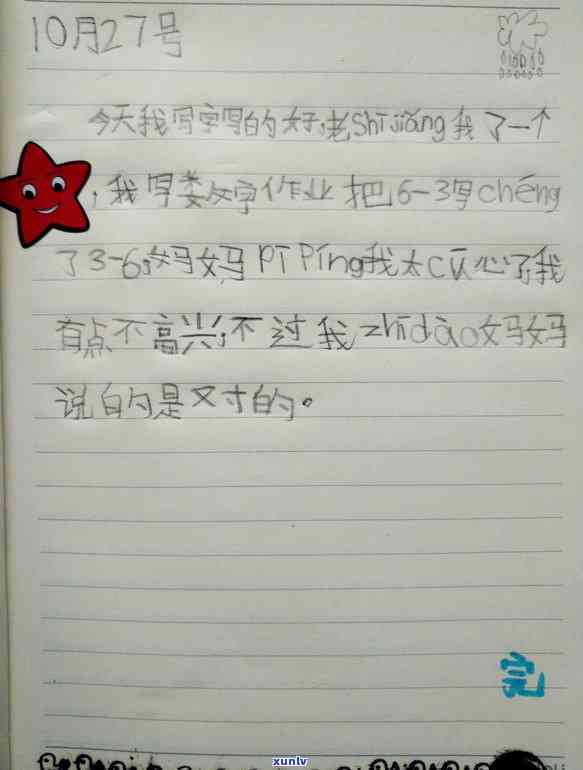 10月27号
今天我写字写的好,老Shī jiǎng我了一个
,我写数字作业把6-3写chéng
了3-6,妈妈PīPíng我太cū心了,我
有点不高兴,不过我zhīdào妈妈
说的是对的。
完
xunlv